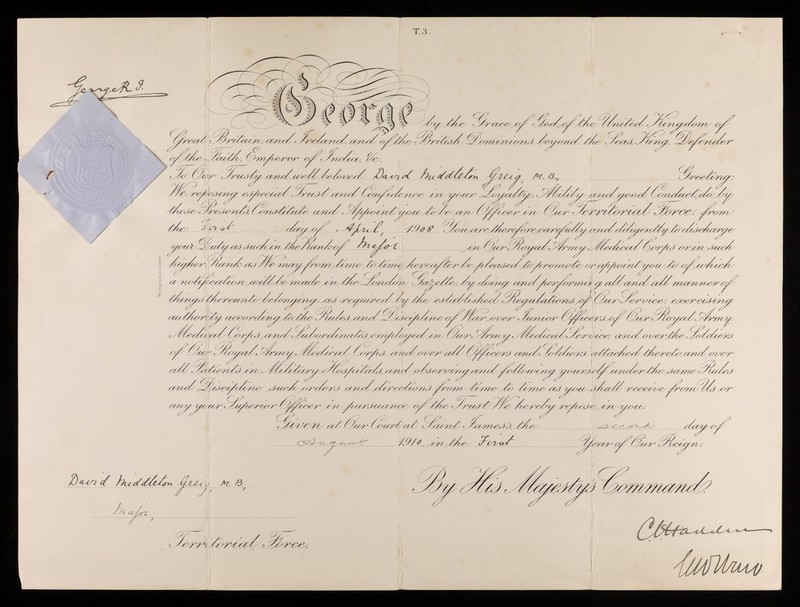 T.3.
George R.I.
George by the Grace of God, of the United Kingdom of
Great Britain and Ireland and of the British Dominions beyond the Seas King, Defender
of the Faith, Emperor of India, &c.
To Our Trusty and well beloved David Middleton Greig, M.B., Greeting:
We reposing especial Trust and Confidence in your Loyalty, Ability and good Conduct, do by
these Presents Constitute and Appoint you to be an Officer in Our Territorial Force from
the First day of April, 1908. You are therefore carefully and diligently to discharge
your Duty as such in the Rank of Major in Our Royal Army Medical Corps or in such
higher Rank as We may from time to time hereafter be pleased to promote or appoint you to of which
a notification will be made in the London Gazette, by doing and performing all and all manner of
things thereunto belonging, as required by the established Regulations of Our Service, exercising
authority according to the Rules and Discipline of War over Junior Officers of Our Royal Army
Medical Corps, and Subordinates employed in Our Army Medical Service, and over the Soldiers
of Our Royal Army Medical Corps, and over all Officers and Soldiers attached thereto, and over
all Patients in Military Hospitals, and observing and following yourself under the same Rules
and Discipline such orders and directions from time to time as you shall receive from Us, or
any your Superior Officer in pursuance of the Trust We hereby repose in you.
Given at Our Court at Saint James's, the second day of
August 1910. in the First Year of Our Reign.
By His Majesty's Command.
David Middleton Greig, M.B.,
Major,
Territorial Force.